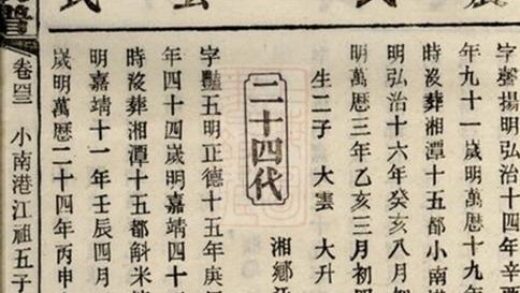 字聲揚明弘治十四年辛
年九十一歲明萬歷十九年
時沒葬湘潭十五都小南
明弘治十六年癸亥八月初
明萬歷三年乙亥三月初
生二子 大雲 大升
湘鄉
二十四代
字豔五明正德十五年庚
年四十四歲明嘉靖四十
時沒葬湘潭十五都斛米
明嘉靖十一年壬辰四月
歲明萬歷二十四年丙申
卷四三 小南港江祖五子